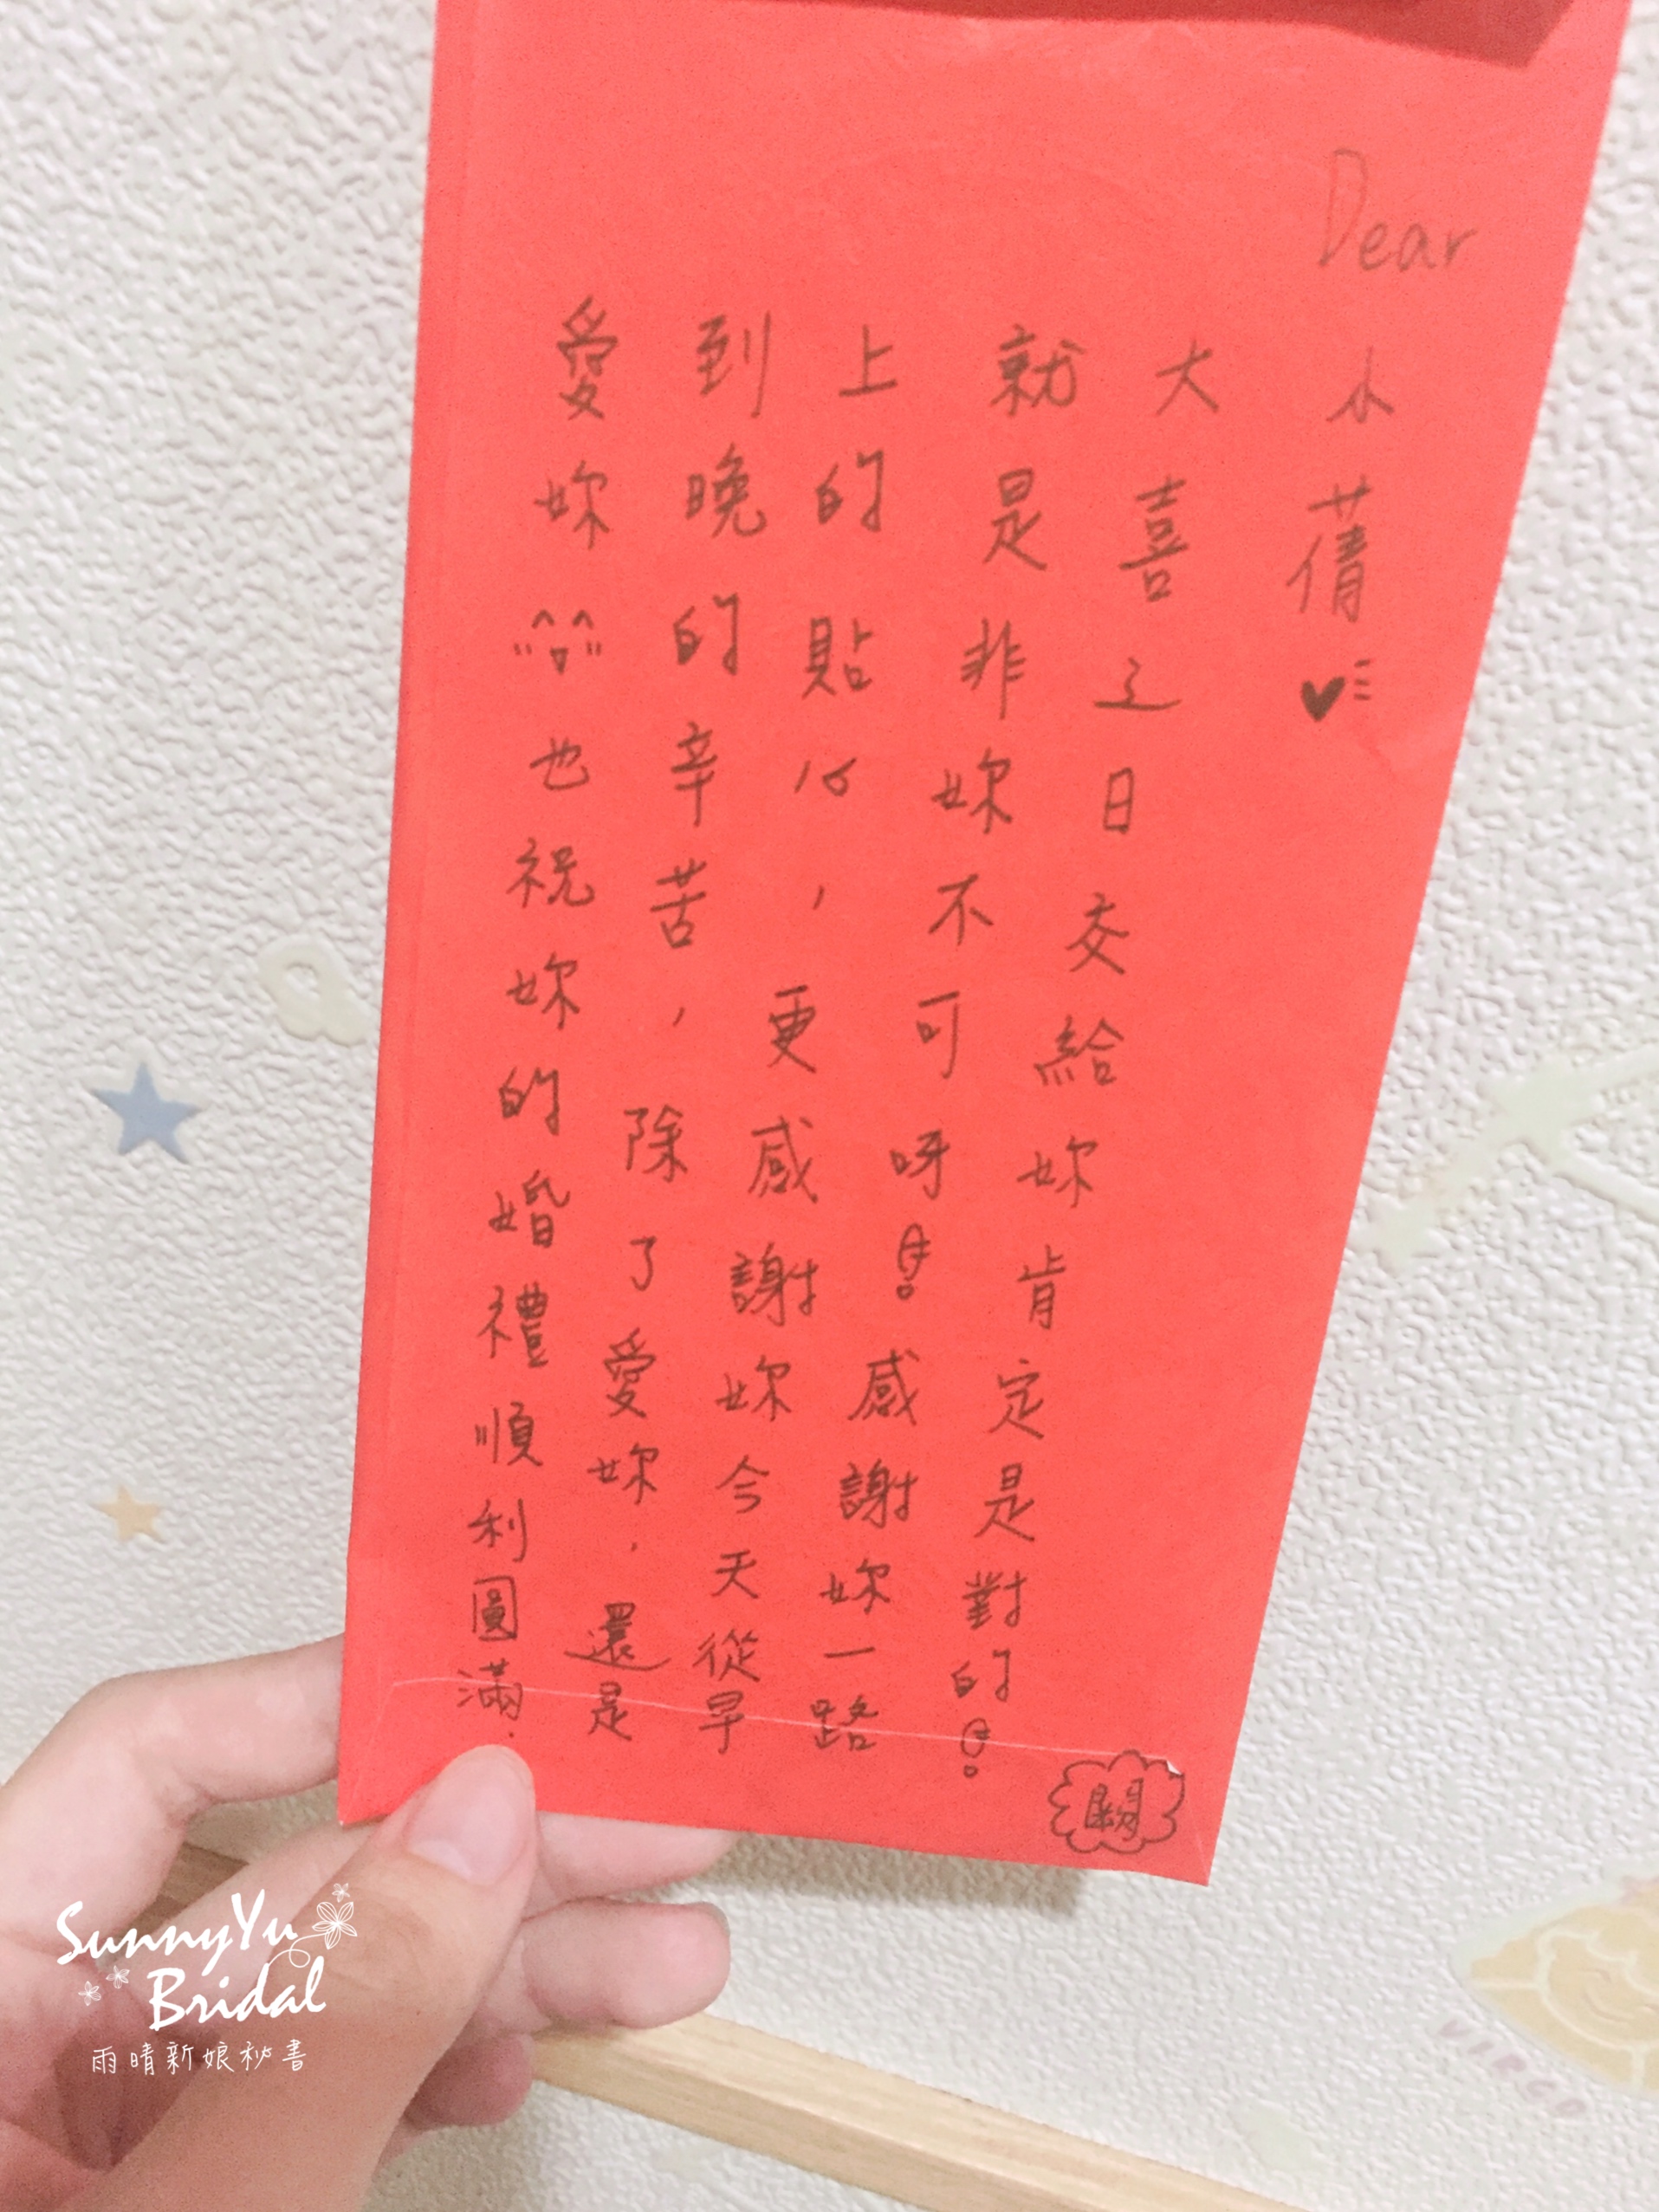 Dear
小蒨
大喜之日交給妳肯定是對的!
就是非妳不可呀!感謝妳一路
上的貼心,更感謝妳今天從早
到晚的辛苦,除了愛妳,還是
愛妳 也祝妳的婚禮順利圓滿.
SunnyYu
Bridal
雨晴新娘秘書
VIRGO